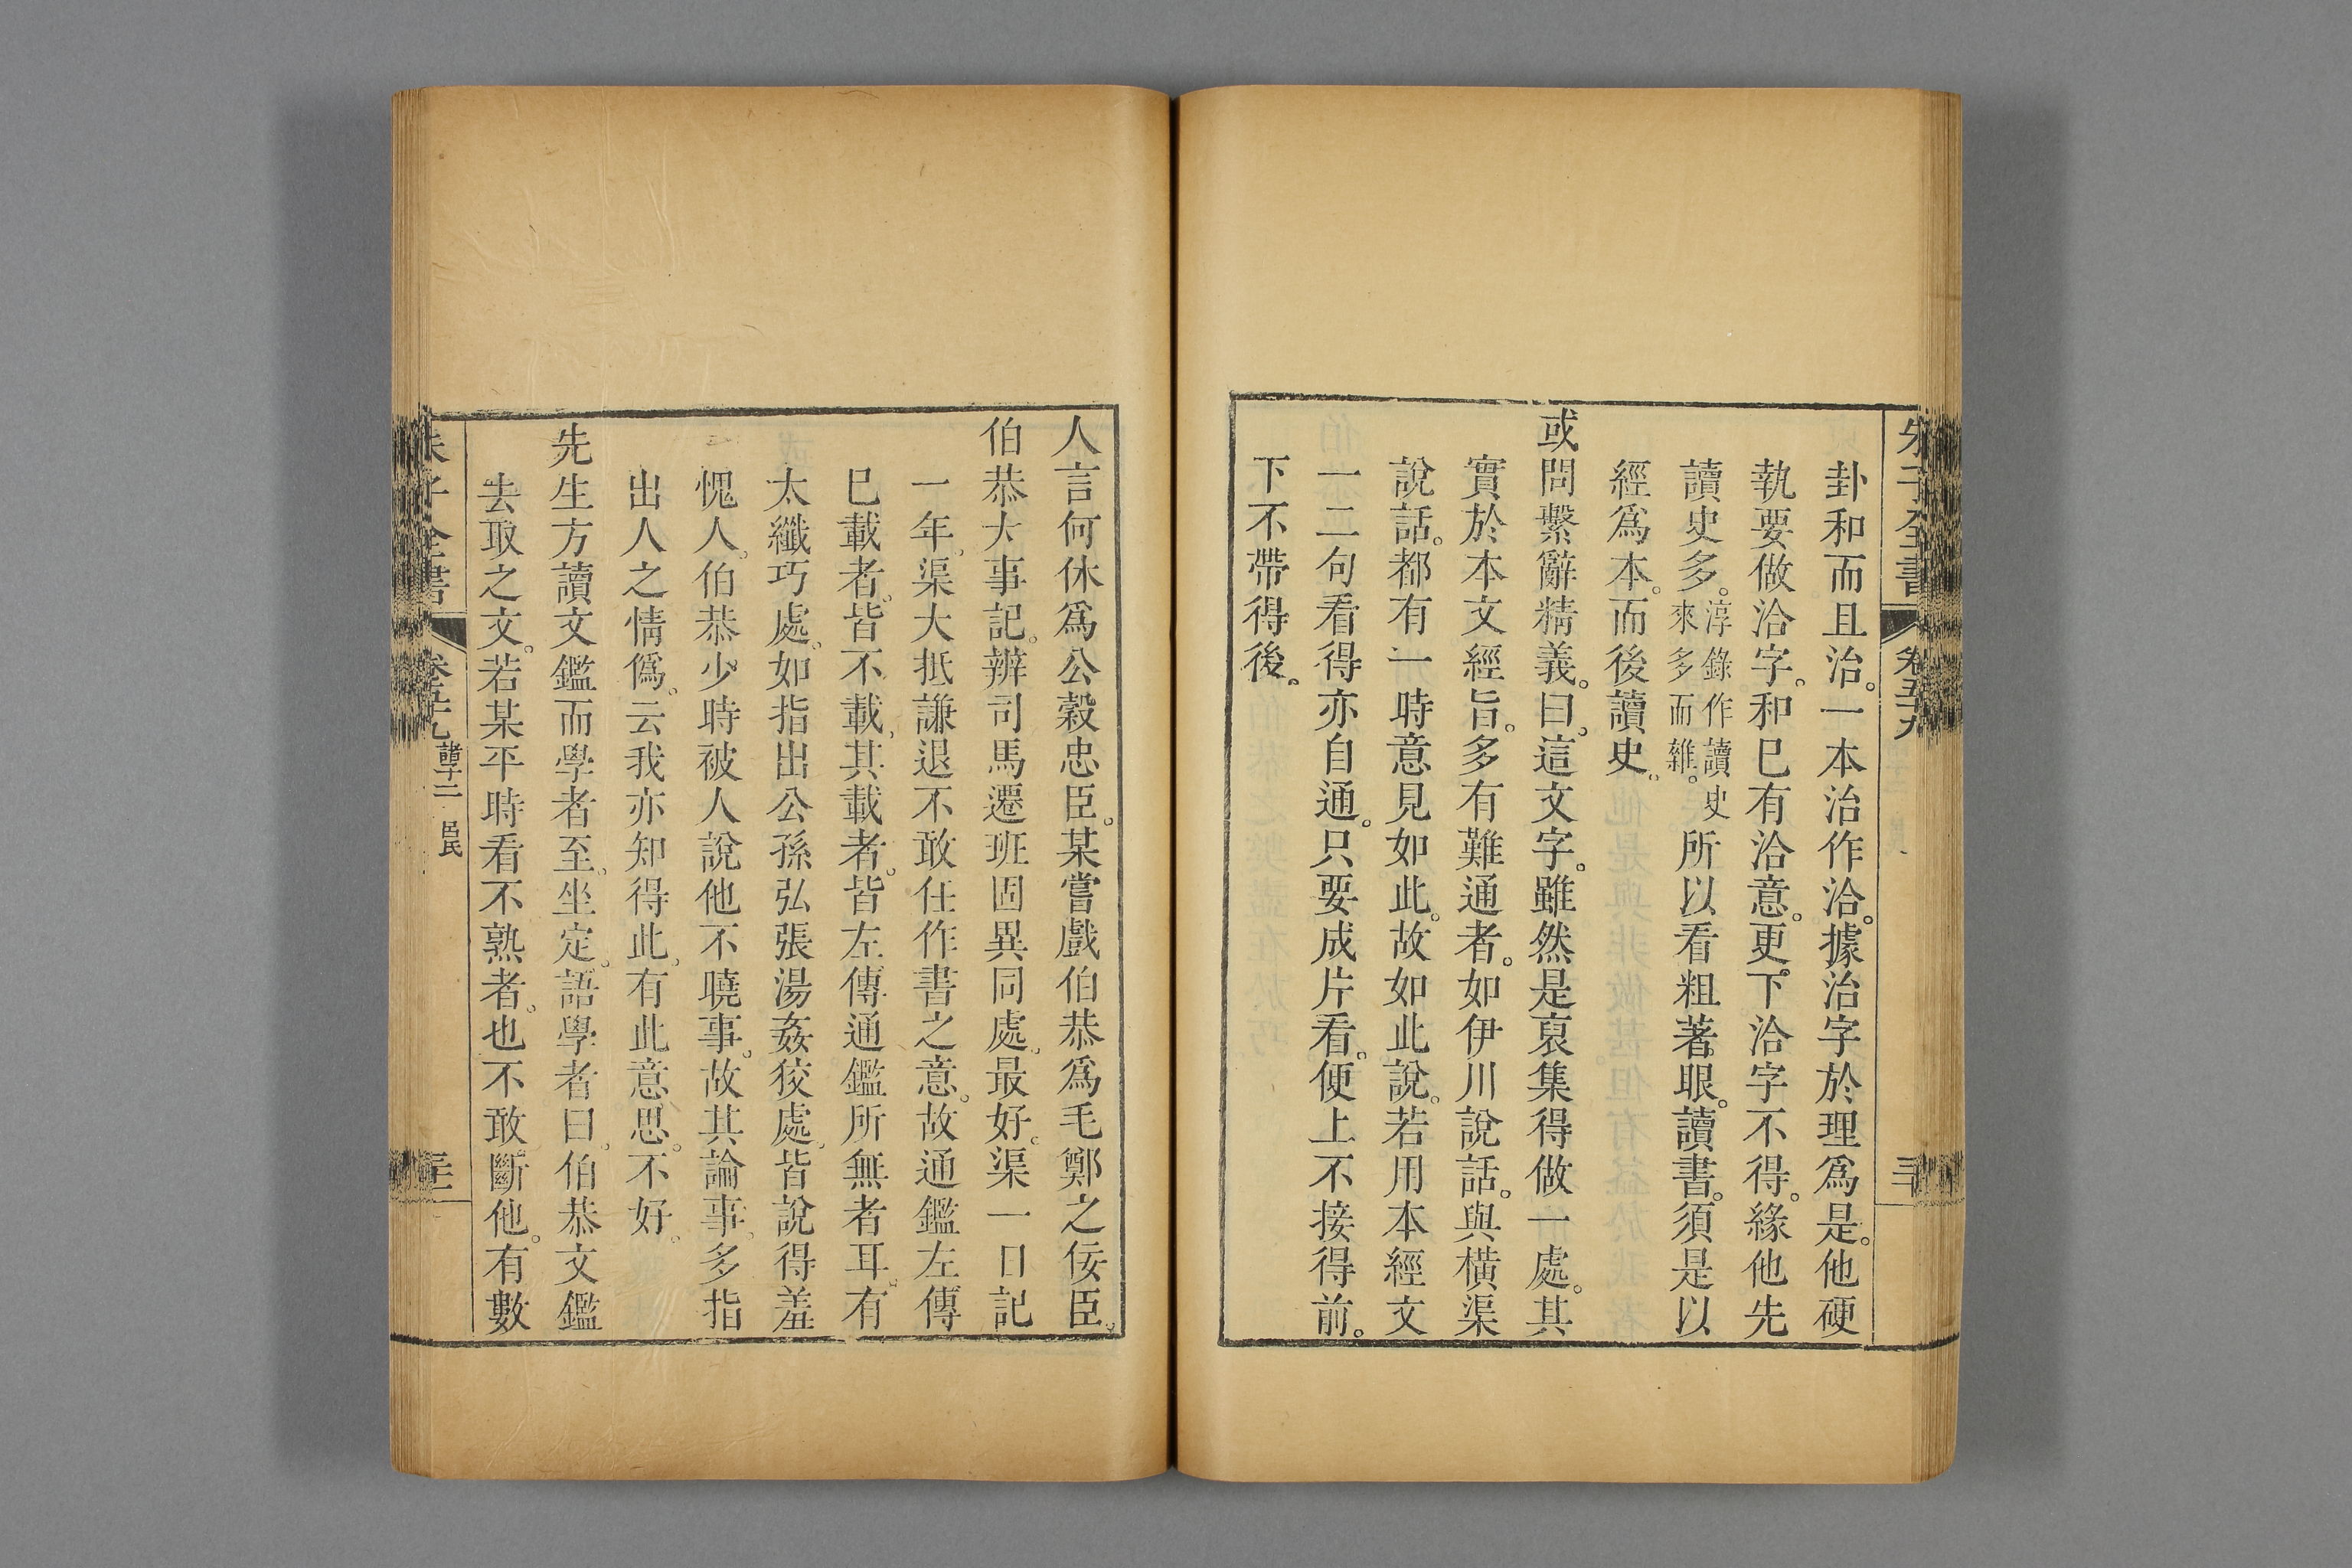 朱子全書 卷五十九 三十
卦和而且治。一本治作洽。據治字於理爲是。他硬
執要做洽字。和已有洽意。更下洽字不得。緣他先
讀史多。淳錄作讀史來多而雜。所以看粗著眼。讀書。須是以
經爲本。而後讀史。
或問繫辭精義。曰。這文字。雖然是裒集得做一處。其
實於本文經旨。多有難通者。如伊川說話。與橫渠
說話。都有一時意見如此。故如此說。若用本經文
一二句看得亦自通。只要成片看。便上不接得前。
下不帶得後。
人言何休爲公穀忠臣。某嘗戲伯恭爲毛鄭之佞臣。
伯恭大事記。辨司馬遷班固異同處。最好。渠一日記
一年。渠大抵謙退不敢任作書之意。故通鑑左傳
已載者。皆不載。其載者。皆左傳通鑑所無者耳。有
太纖巧處。如指出公孫弘張湯姦狡處。皆說得羞
愧人。伯恭少時被人說他不曉事。故其論事。多指
出人之情僞。云我亦知得此。有此意思。不好。
先生方讀文鑑而學者至。坐定。語學者曰。伯恭文鑑
去取之文。若某平時看不熟者。也不敢斷他。有數
朱子全書 卷五十九